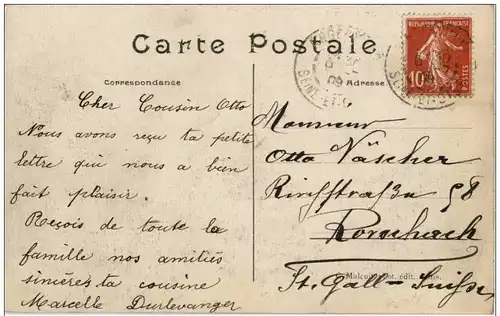 Carte Postale
Correspondance
Adresse
Cher Cousin Otto
Nous avons reçu ta petite
lettre qui nous a bien
fait plaisir.
Reçois de toute la
famille nos amitiés
sincères ta cousine
Marcelle Durlevanger
Monsieur
Otto Näscher
58
Rorschach
St. Gall - Suisse
édit.
RÉPUBLIQUE FRANÇAISE
10
POSTES
SEINE-ET-O